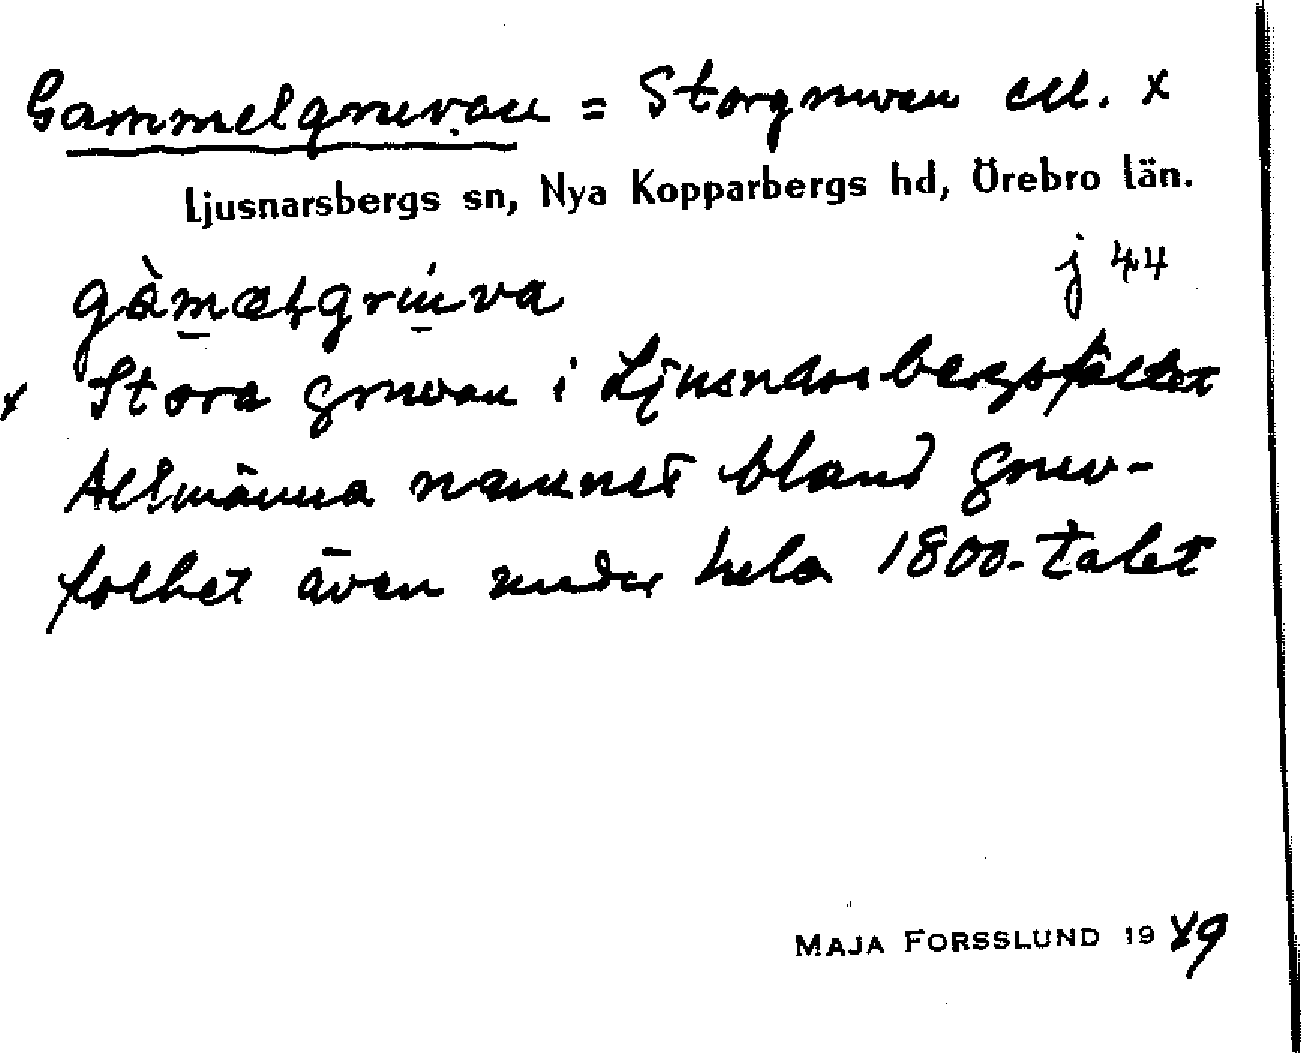 Gammelgruvan = Storgruvan ell. x
Ljusnarsbergs sn, Nya Kopparbergs hd, Örebro län.
gàmælgru̇va j 44
x Stora gruvan i Ljusnarsbergsfältet
Allmänna namnet bland gruv-
folket även under hela 1800-talet
MAJA FORSSLUND 1949